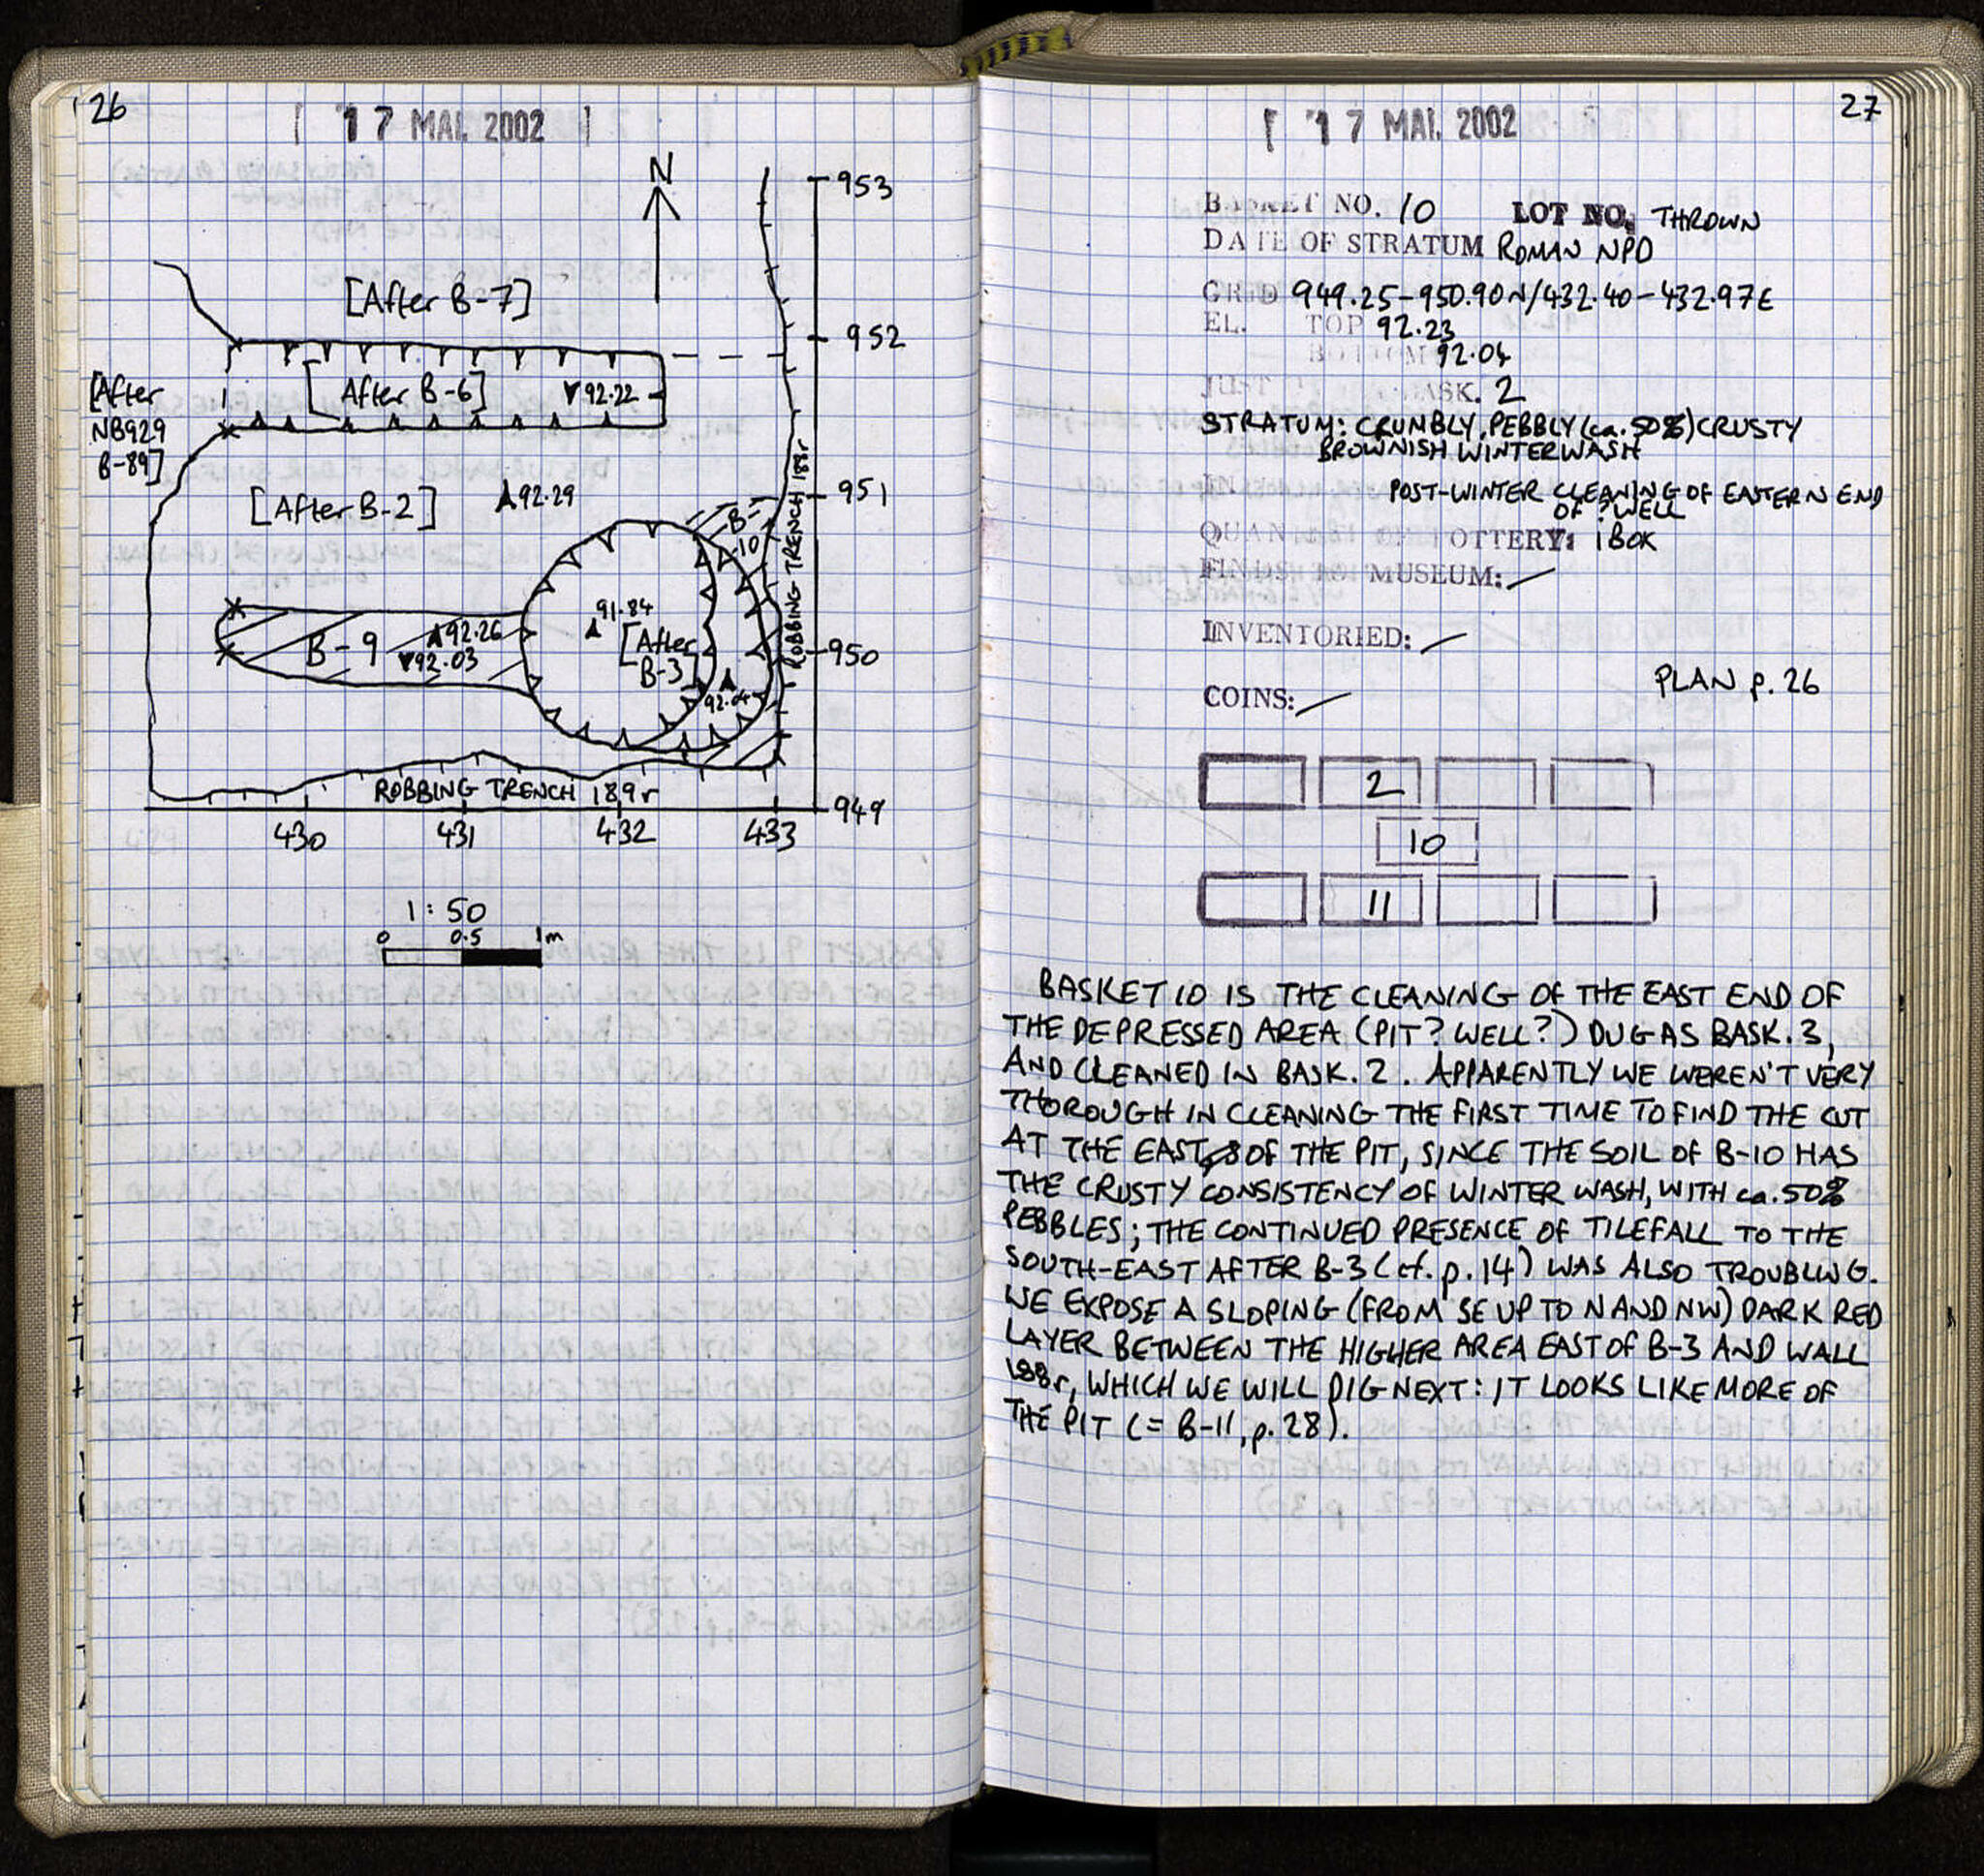 26
17 MAI. 2002
N
953
[After B-7]
952
[After
NB929
B-89]
[After B-6]
92.22
[After B-2]
92.29
951
B-
10
ROBBING TRENCH 188r
B-9
92.26
92.03
91.84
[After
B-3]
92.04
950
ROBBING TRENCH 189r
949
430
431
432
433
1:50
0 0.5 1m
17 MAI. 2002
27
BASKET NO. 10 LOT NO. THROWN
DATE OF STRATUM ROMAN NPD
GRID 949.25-950.90N/432.40-432.97E
EL. TOP 92.23
BOTTOM 92.04
BASK. 2
STRATUM: CRUMBLY, PEBBLY (ca. 50%) CRUSTY
BROWNISH WINTERWASH
POST-WINTER CLEANING OF EASTERN END
OF ?WELL
QUANTITY OF POTTERY: 1 BOX
FINDS TO MUSEUM: /
INVENTORIED: /
PLAN p. 26
COINS: /
2
10
11
BASKET 10 IS THE CLEANING OF THE EAST END OF
THE DEPRESSED AREA (PIT? WELL?) DUG AS BASK. 3,
AND CLEANED IN BASK. 2. APPARENTLY WE WEREN'T VERY
THOROUGH IN CLEANING THE FIRST TIME TO FIND THE CUT
AT THE EAST OF THE PIT, SINCE THE SOIL OF B-10 HAS
THE CRUSTY CONSISTENCY OF WINTER WASH, WITH ca. 50%
PEBBLES; THE CONTINUED PRESENCE OF TILEFALL TO THE
SOUTH-EAST AFTER B-3 (cf. p. 14) WAS ALSO TROUBLING.
WE EXPOSE A SLOPING (FROM SE UP TO N AND NW) DARK RED
LAYER BETWEEN THE HIGHER AREA EAST OF B-3 AND WALL
188r, WHICH WE WILL DIG NEXT: IT LOOKS LIKE MORE OF
THE PIT (= B-11, p. 28).